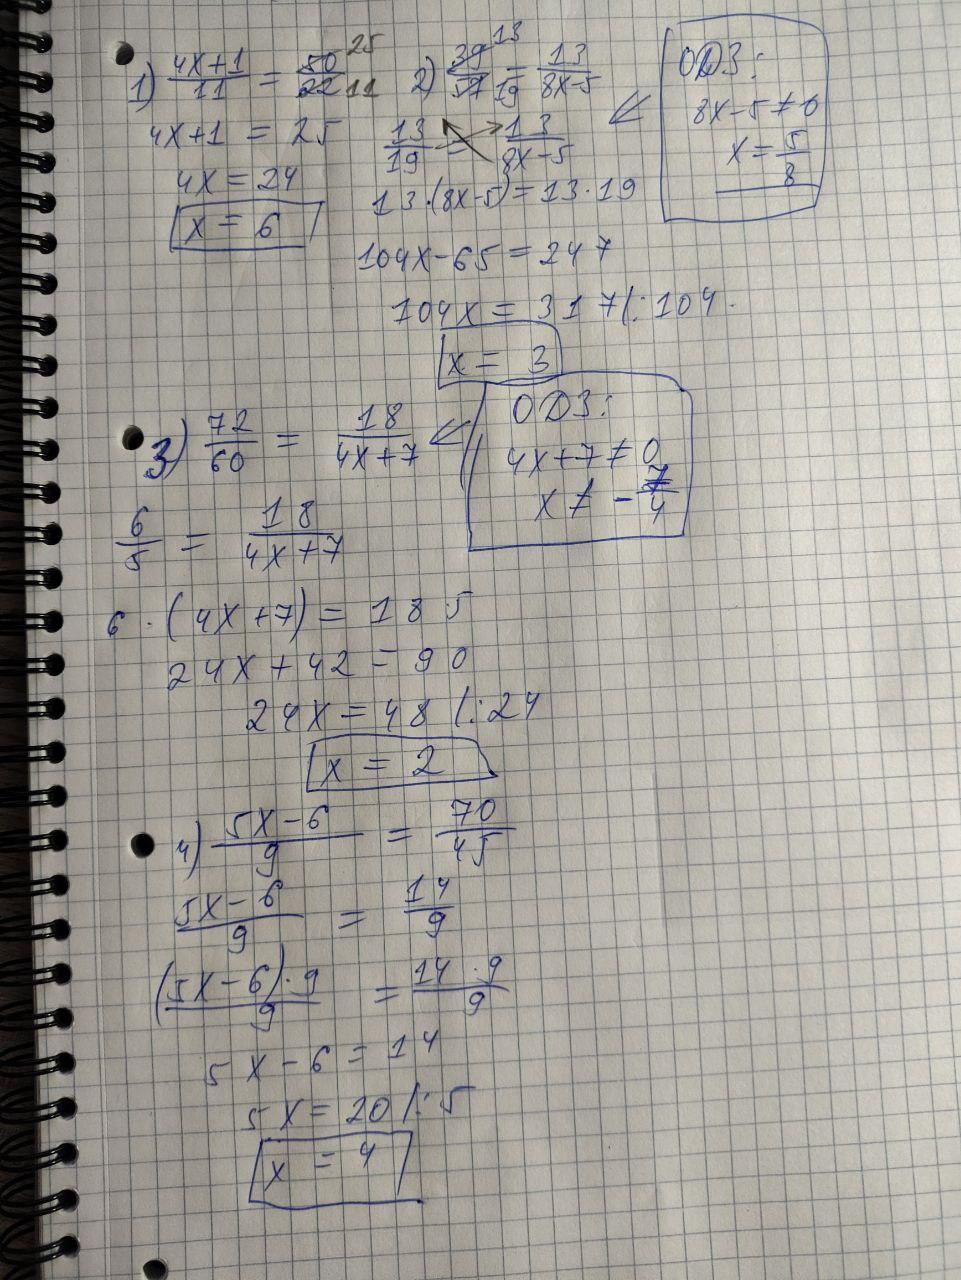 1) (4x+1)/11 = 50/22 25 11
4x+1 = 25
4x = 24
x = 6
2) 39/57 13 19 = 13/(8x-5)
13/19 = 13/(8x-5)
13·(8x-5) = 13·19
104x-65 = 247
104x = 317 |:104
x = 3
OD3:
8x-5≠0
x = 5/8
3) 72/60 = 18/(4x+7)
OD3:
4x+7≠0
x ≠ -7/4
6/5 = 18/(4x+7)
6·(4x+7) = 18 5
24x+42 = 90
24x = 48 |:24
x = 2
4) (5x-6)/9 = 70/45
(5x-6)/9 = 14/9
(5x-6)·9/9 = 14·9/9
5x-6 = 14
5x = 20 |:5
x = 4